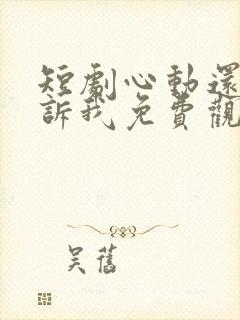 短劇心動還
訴我免費觀
吴舊